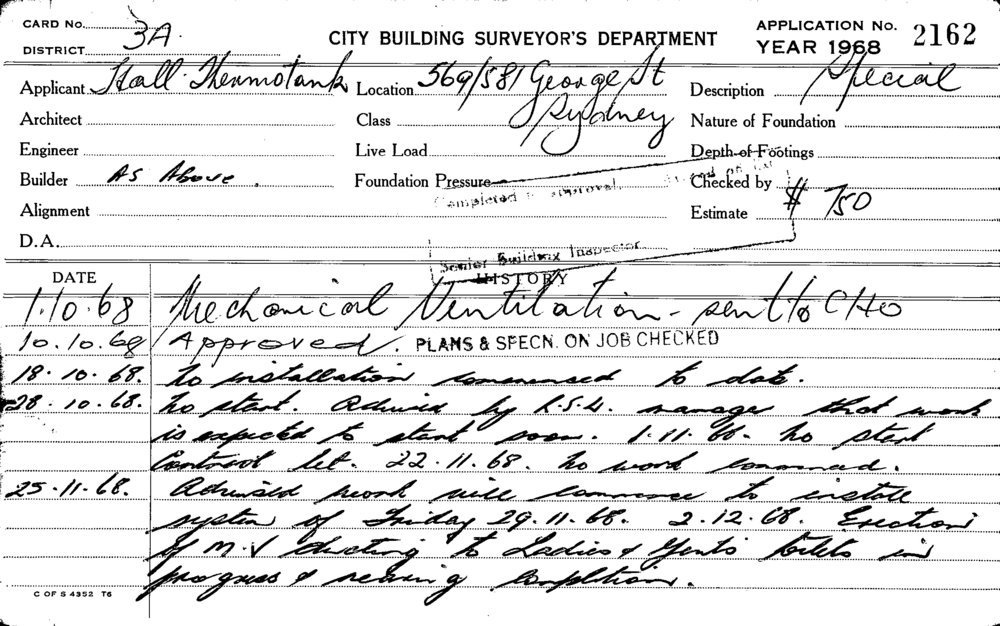 CARD No.
DISTRICT 3A.
CITY BUILDING SURVEYOR'S DEPARTMENT
APPLICATION No. 2162
YEAR 1968
Applicant Hall Thermotank Location 569/581 George St Description Special
Architect Class Sydney Nature of Foundation
Engineer Live Load Depth of Footings
Builder As Above. Foundation Pressure Checked by
Completed approval.
Alignment Estimate $ 750
D.A.
Senior Building Inspector.
DATE HISTORY
1.10.68 Mechanical Ventilation - sent to CHO
10.10.68 Approved. PLANS & SPECN. ON JOB CHECKED
18.10.68. No installation commenced to date.
28.10.68. No start. Advised by R.S.L. manager that work
is expected to start soon. 1.11.68- No start
Contract let. 22.11.68. No work commenced.
25.11.68. Advised work will commence to install
system of Friday 29.11.68. 2.12.68. Erection
of M.V ducting to Ladies & Gents toilets in
progress & nearing completion.
C OF S 4352 T6